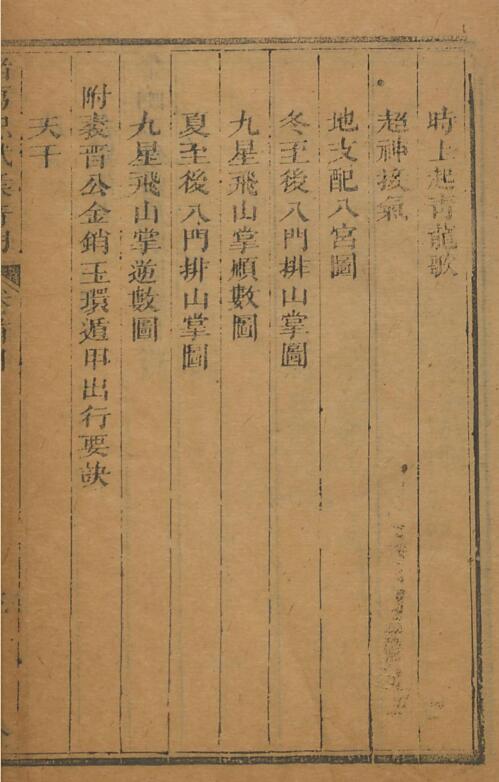 時上起青龍歌
超神接氣
地支配八宮圖
冬至後八門排山掌圖
九星飛山掌順數圖
夏至後八門排山掌圖
九星飛山掌逆數圖
附裴晋公金銷玉環遁甲出行要訣
天干